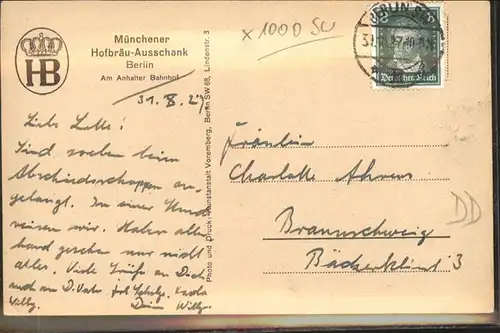 HB
Münchener
Hofbräu-Ausschank
Berlin
Am Anhalter Bahnhof
31. X. 27
Liebe Lotte!
Sind soeben beim
Abschiedsschoppen an-
gelangt. In einer Stunde
reisen wir. Haben aller-
hand gesehen nur nicht
alles. Viele Grüße an Dich
auch an D. Vater
Dein Willy
Photo und Druck: Kunstanstalt Voremberg, Berlin SW 68, Lindenstr. 3
x 1000 SW
BERLIN SW
Deutsches Reich
Fräulein
Charlotte Ahrens
Braunschweig
Bäckerklint 3
DD